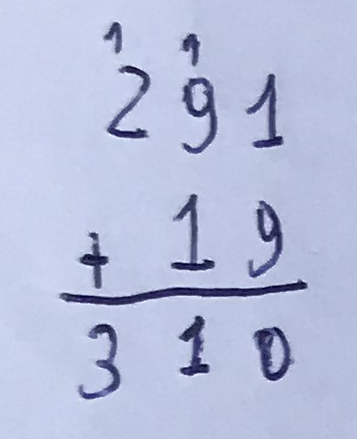 1 1
2 9 1
+ 1 9
3 1 0